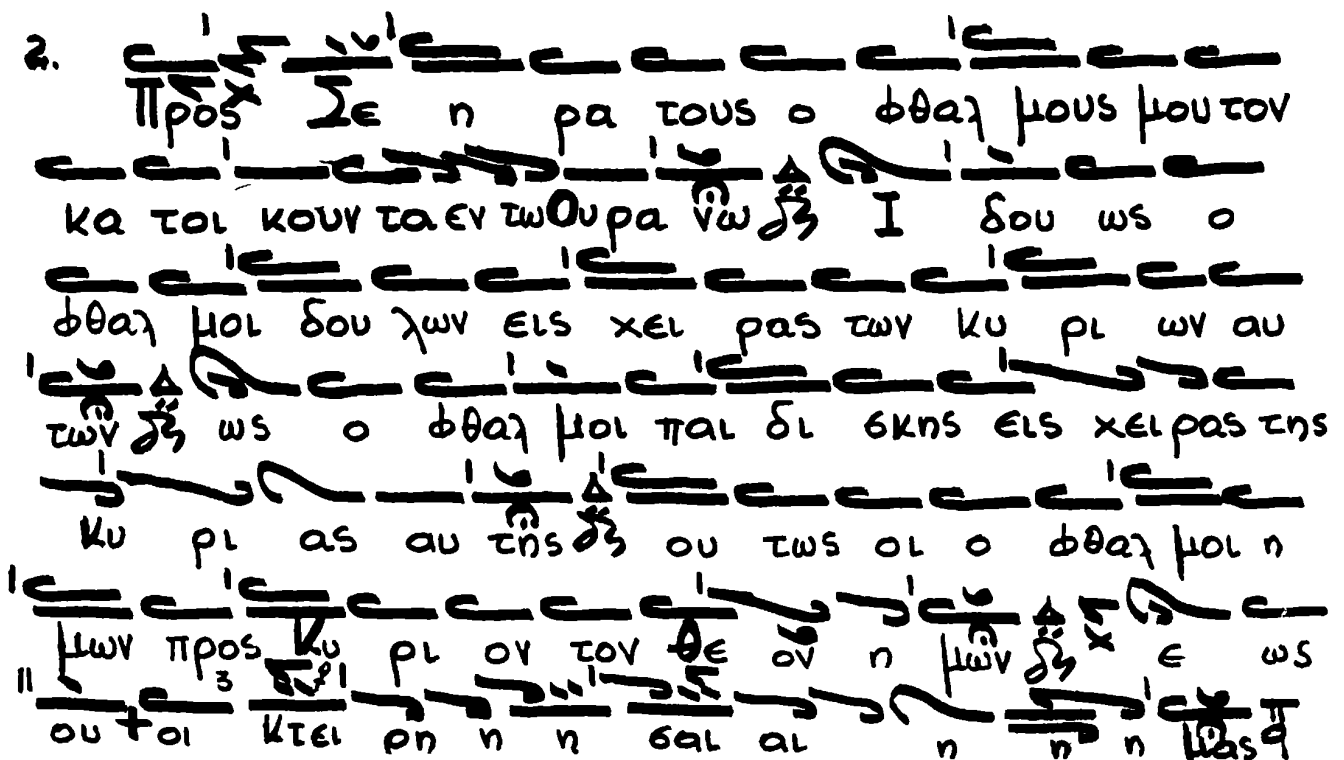 2. Προς Σε η ρα τους ο φθαλ μους μου τον
κα τοι κουν τα εν τω Ου ρα νω Ι δου ως ο
φθαλ μοι δου λων εις χει ρας των κυ ρι ων αυ
των ως ο φθαλ μοι παι δι σκης εις χει ρας της
κυ ρι ας αυ της ου τως οι ο φθαλ μοι η
μων προς Κυ ρι ον τον θε ον η μων ε ως
ου οι κτει ρη η η σαι αι η η η μας